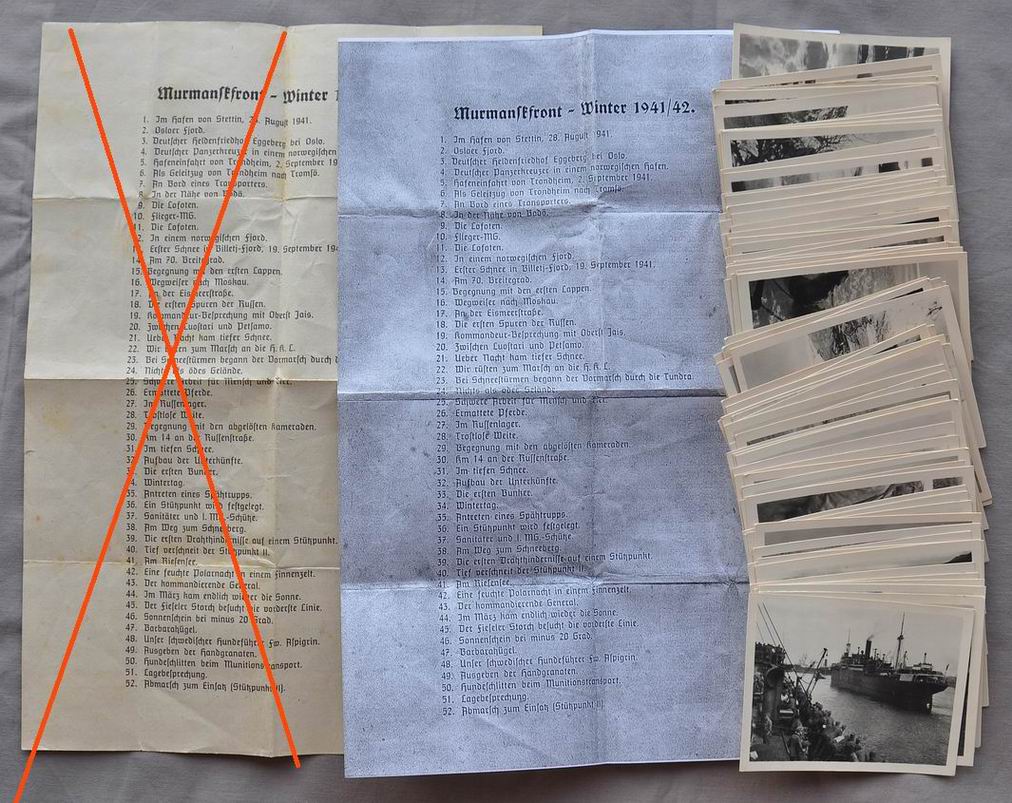 Murmanskfront - Winter 1
1. Im Hafen von Stettin, 28. August 1941.
2. Osloer Fjord.
3. Deutscher Heldenfriedhof Eggeberg bei Oslo.
4. Deutscher Panzerkreuzer in einem norwegischen
5. Hafeneinfahrt von Trondheim, 2. September 19
6. Als Geleitzug von Trondheim nach Tromsö.
7. An Bord eines Transporters.
8. In der Nähe von Bodö.
9. Die Lofoten.
10. Flieger-MG.
11. Die Lofoten.
12. In einem norwegischen Fjord.
13. Erster Schnee in Billefj-Fjord, 19. September 194
14. Am 70. Breitegrad.
15. Begegnung mit den ersten Lappen.
16. Wegweiser nach Moskau.
17. An der Eismeerstraße.
18. Die ersten Spuren der Russen.
19. Kommandeur-Besprechung mit Oberst Jais.
20. Zwischen Luostari und Petsamo.
21. Ueber Nacht kam tiefer Schnee.
22. Wir rüsten zum Marsch an die H.K.L.
23. Bei Schneestürmen begann der Vormarsch durch d
24. Nichts als ödes Gelände.
25. Schwere Arbeit für Mensch und Tier.
26. Ermattete Pferde.
27. Im Russenlager.
28. Trostlose Weite.
29. Begegnung mit den abgelösten Kameraden.
30. Km 14 an der Russenstraße.
31. Im tiefen Schnee.
32. Aufbau der Unterkünfte.
33. Die ersten Bunker.
34. Wintertag.
35. Antreten eines Spähtrupps.
36. Ein Stützpunkt wird festgelegt.
37. Sanitäter und I. MG.-Schütze.
38. Am Weg zum Schneeberg.
39. Die ersten Drahthindernisse auf einem Stützpunkt.
40. Tief verschneit der Stützpunkt II.
41. Am Riesensee.
42. Eine feuchte Polarnacht in einem Finnenzelt.
43. Der kommandierende General.
44. Im März kam endlich wieder die Sonne.
45. Der Fieseler Storch besucht die vorderste Linie.
46. Sonnenschein bei minus 20 Grad.
47. Barbarahügel.
48. Unser schwedischer Hundeführer Fw. Aspigrin.
49. Ausgeben der Handgranaten.
50. Hundeschlitten beim Munitionstransport.
51. Lagebesprechung.
52. Abmarsch zum Einsatz (Stützpunkt II).
Murmanskfront - Winter 1941/42.
1. Im Hafen von Stettin, 28. August 1941.
2. Osloer Fjord.
3. Deutscher Heldenfriedhof Eggeberg bei Oslo.
4. Deutscher Panzerkreuzer in einem norwegischen Hafen.
5. Hafeneinfahrt von Trondheim, 2. September 1941.
6. Als Geleitzug von Trondheim nach Tromsö.
7. An Bord eines Transporters.
8. In der Nähe von Bodö.
9. Die Lofoten.
10. Flieger-MG.
11. Die Lofoten.
12. In einem norwegischen Fjord.
13. Erster Schnee in Billefj-Fjord, 19. September 1941.
14. Am 70. Breitegrad.
15. Begegnung mit den ersten Lappen.
16. Wegweiser nach Moskau.
17. An der Eismeerstraße.
18. Die ersten Spuren der Russen.
19. Kommandeur-Besprechung mit Oberst Jais.
20. Zwischen Luostari und Petsamo.
21. Ueber Nacht kam tiefer Schnee.
22. Wir rüsten zum Marsch an die H.K.L.
23. Bei Schneestürmen begann der Vormarsch durch die Tundra.
24. Nichts als ödes Gelände.
25. Schwere Arbeit für Mensch und Tier.
26. Ermattete Pferde.
27. Im Russenlager.
28. Trostlose Weite.
29. Begegnung mit den abgelösten Kameraden.
30. Km 14 an der Russenstraße.
31. Im tiefen Schnee.
32. Aufbau der Unterkünfte.
33. Die ersten Bunker.
34. Wintertag.
35. Antreten eines Spähtrupps.
36. Ein Stützpunkt wird festgelegt.
37. Sanitäter und I. MG.-Schütze.
38. Am Weg zum Schneeberg.
39. Die ersten Drahthindernisse auf einem Stützpunkt.
40. Tief verschneit der Stützpunkt II.
41. Am Riesensee.
42. Eine feuchte Polarnacht in einem Finnenzelt.
43. Der kommandierende General.
44. Im März kam endlich wieder die Sonne.
45. Der Fieseler Storch besucht die vorderste Linie.
46. Sonnenschein bei minus 20 Grad.
47. Barbarahügel.
48. Unser schwedischer Hundeführer Fw. Aspigrin.
49. Ausgeben der Handgranaten.
50. Hundeschlitten beim Munitionstransport.
51. Lagebesprechung.
52. Abmarsch zum Einsatz (Stützpunkt II)